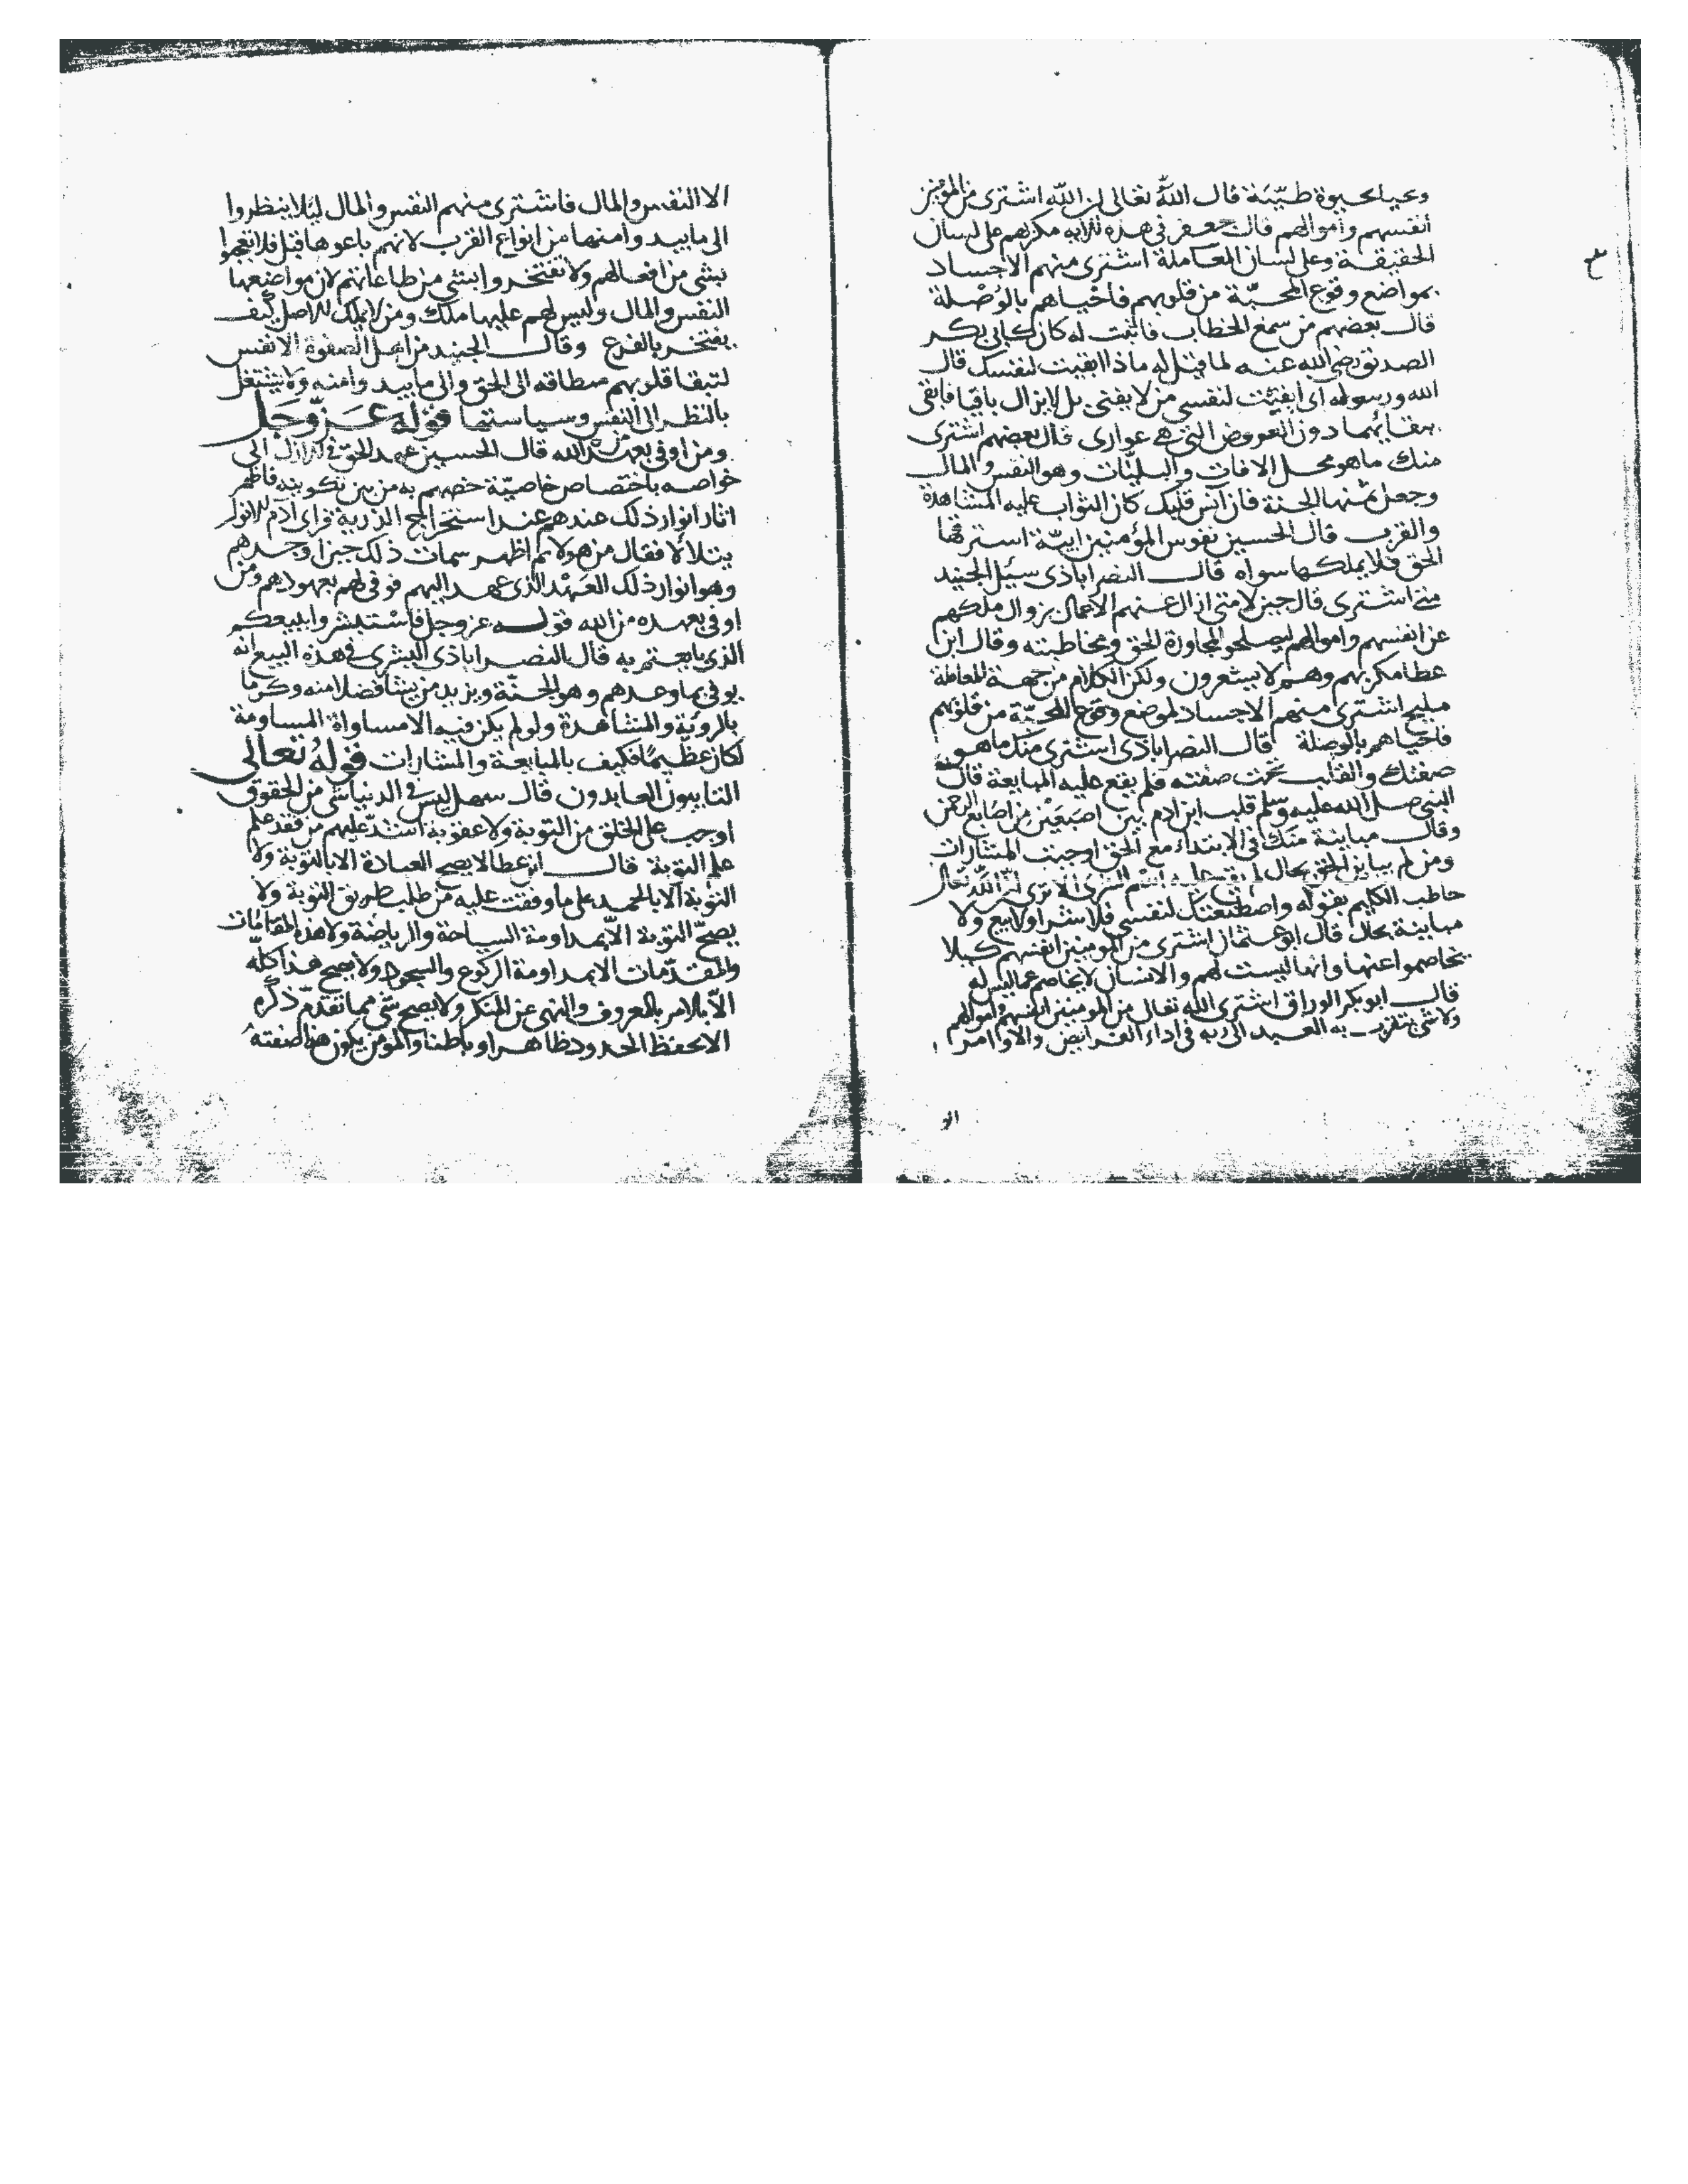 ويحيا بحيوة طيبة قال الله تعالى ان الله اشترى من المؤمنين
أنفسهم وأموالهم قال جعفر في هذه الآية مكر بهم على لسان
الحقيقة وعلى لسان المعاملة اشترى منهم الاجساد
بمواضع وقوع المحبّة من قلوبهم فاحياهم بالوُصْلة
قال بعضهم من سمع الخطاب فانتبه له كان كابى بكر
الصديق رضى الله عنه لما قيل له ماذا ابقيت لنفسك قال
الله ورسوله اى ابقيت لنفسى من لا يفنى بل لا يزال باقيا فابقى
ببقائهما دون العروض التى هى عوارى قال بعضهم اشترى
منك ماهو محل الافات والبليّات وهو النفس والمال
وجعل ثمنها الجنة فان آنس قلبك كان الثواب عليه المشاهدة
والقرب قال الحسين نفوس المؤمنين ابيّة استرقها
الحق فلا يملكها سواه قال النصراباذى سئل الجنيد
متى اشترى قال حين لا متى ازال عنهم الاعمال بزوال ملكهم
عن انفسهم واموالهم ليصلحوا لمجاورة الحق ومخاطبته وقال ابن
عطا مكر بهم وهم لا يشعرون ولكن الكلام من جهة المعاملة
مليح اشترى منهم الاجساد لموضع وقوع المحبّة من قلوبهم
فاحياهم بالوصلة قال النصراباذى اشترى منك ماهو
صفتك والقلب تحت صفته فلم يقع عليه المبايعة قال
النبى صلى الله عليه وسلم قلب ابن ادم بين اصبعين من اصابع الرحمن
وقال مباينة منك فى الابتداء مع الحق اوجبت المشارات
ومن لم يباين الحق بحال لم يقع عليه اسم الشرى الا ترى ان الله تعالى
خاطب الكليم بقوله واصطنعتك لنفسى فلا شرا ولا بيع ولا
مباينة بحال قال ابو عثمان اشترى من المومنين انفسهم كيلا
يخاصموا عنها وانها ليست لهم والانسان لا يخاصم عما ليس له
قال ابو بكر الوراق اشترى الله تعالى من المومنين انفسهم واموالهم
ولا شى يتقرب به العبد الى ربه فى اداء الفرايض والاوامر
الا
الا النفس والمال فاشترى منهم النفس والمال ليئلا ينظروا
الى مابيد وامنها من انواع القرب لانهم باعوها قبل فلا تعجبوا
بشى من افعالهم ولا تفتخروا بشى من طاعاتهم لان مواضعها
النفس والمال وليس لهم عليها ملك ومن لا يملك الاصل كيف
يفتخر بالفرع وقال الجنيد من اهل الصفوة الانفس
لتبقا قلوبهم مطاقه الى الحق والى مابيد وامنه ولا يشتغل
بالنظر الى النفس وسياستها قوله عزّ وجل
ومن اوفى بعهده من الله قال الحسين عهد الحق فى الازل الى
خواصه باختصاص خاصيّة خصهم به من بين تكوينه فاظهر
اثار انوار ذلك عندهم عند استخراج الذرية فراى آدم الانوار
يتلألأ فقال من هولا ثم اظهر سمات ذلك حين اوجدهم
وهو انوار ذلك العَهْد الذى عهد اليهم فوفى لهم بعهودهم ومن
اوفى بعهده من الله قوله عز وجل فاسْتبشروا ببيعكم
الذى بايعتم به قال النصراباذى البشرى فى هذه البيع انه
يوفى بما وعدهم وهو الجنّة ويزيد من يشا فضلا منه وكرما
بالروية والمشاهدة ولو لم يكن فيه الا مساواة المساومة
لكان عظيمًا فكيف بالمبايعة والمشارات قوله تعالى
التايبون العابدون قال سهل ليس فى الدنيا شى من الحقوق
اوجب على الخلق من التوبة ولا عقوبة اشدّ عليهم من فقد علم
علم التوبة قال ابن عطا لا يصح العبادة الا بالتوبة ولا
التوبة الا بالحمد على ما وفقت عليه من طلب طريق التوبة ولا
يصحّ التوبة الّا بمداومة السياحة والرياضة ولا هذه المقامات
والمقدّمات الا بمداومة الركوع والسجود ولا يصح هذا كلّه
الّا بالامر بالمعروف والنهى عن المنكر ولا يصح شى مما تقدم ذكره
الا بحفظ الحدود ظاهرا وباطنا والمومن يكون هذا صفته